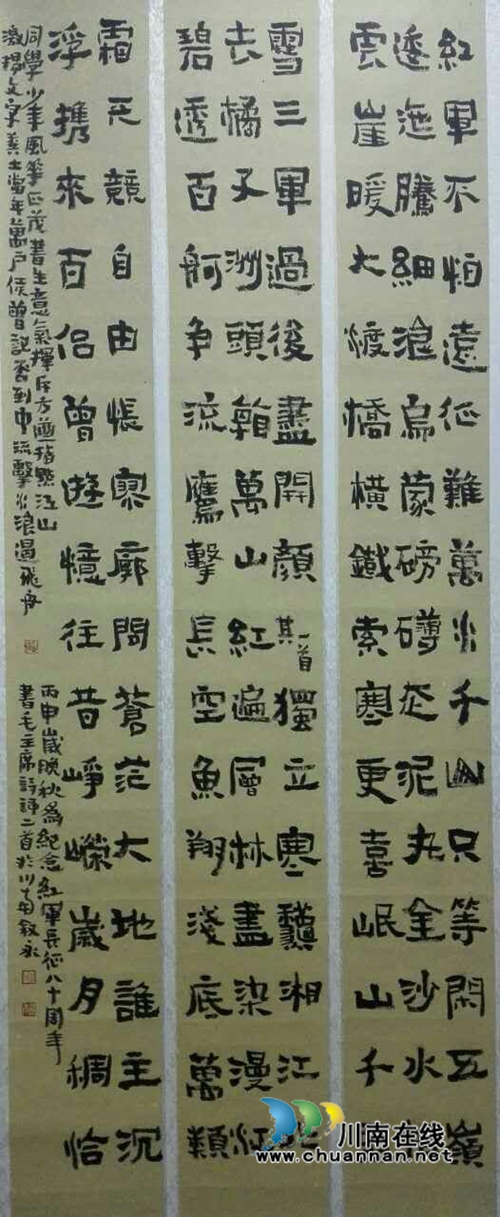 紅軍不怕遠征難萬水千山只等閑五嶺
逶迤騰細浪烏蒙磅礴走泥丸金沙水
雲崖暖大渡橋橫鐵索寒更喜岷山千
雪三軍過後盡開顏 其一首 獨立寒秋湘江北
去橘子洲頭看萬山紅遍層林盡染漫江
碧透百舸争流鷹擊長空魚翔淺底萬類
霜天競自由悵寥廓問蒼茫大地誰主沉
浮携來百侶曾遊憶往昔崢嶸歲月稠恰
同學少年風華正茂書生意氣揮斥方遒指點江山
激揚文字糞土當年萬戶侯曾記否到中流擊水浪遏飛舟
丙申歲晚秋為紀念紅軍長征八十周年
書毛主席詩詞二首於川南敘永
川南在线
www.chuannan.net